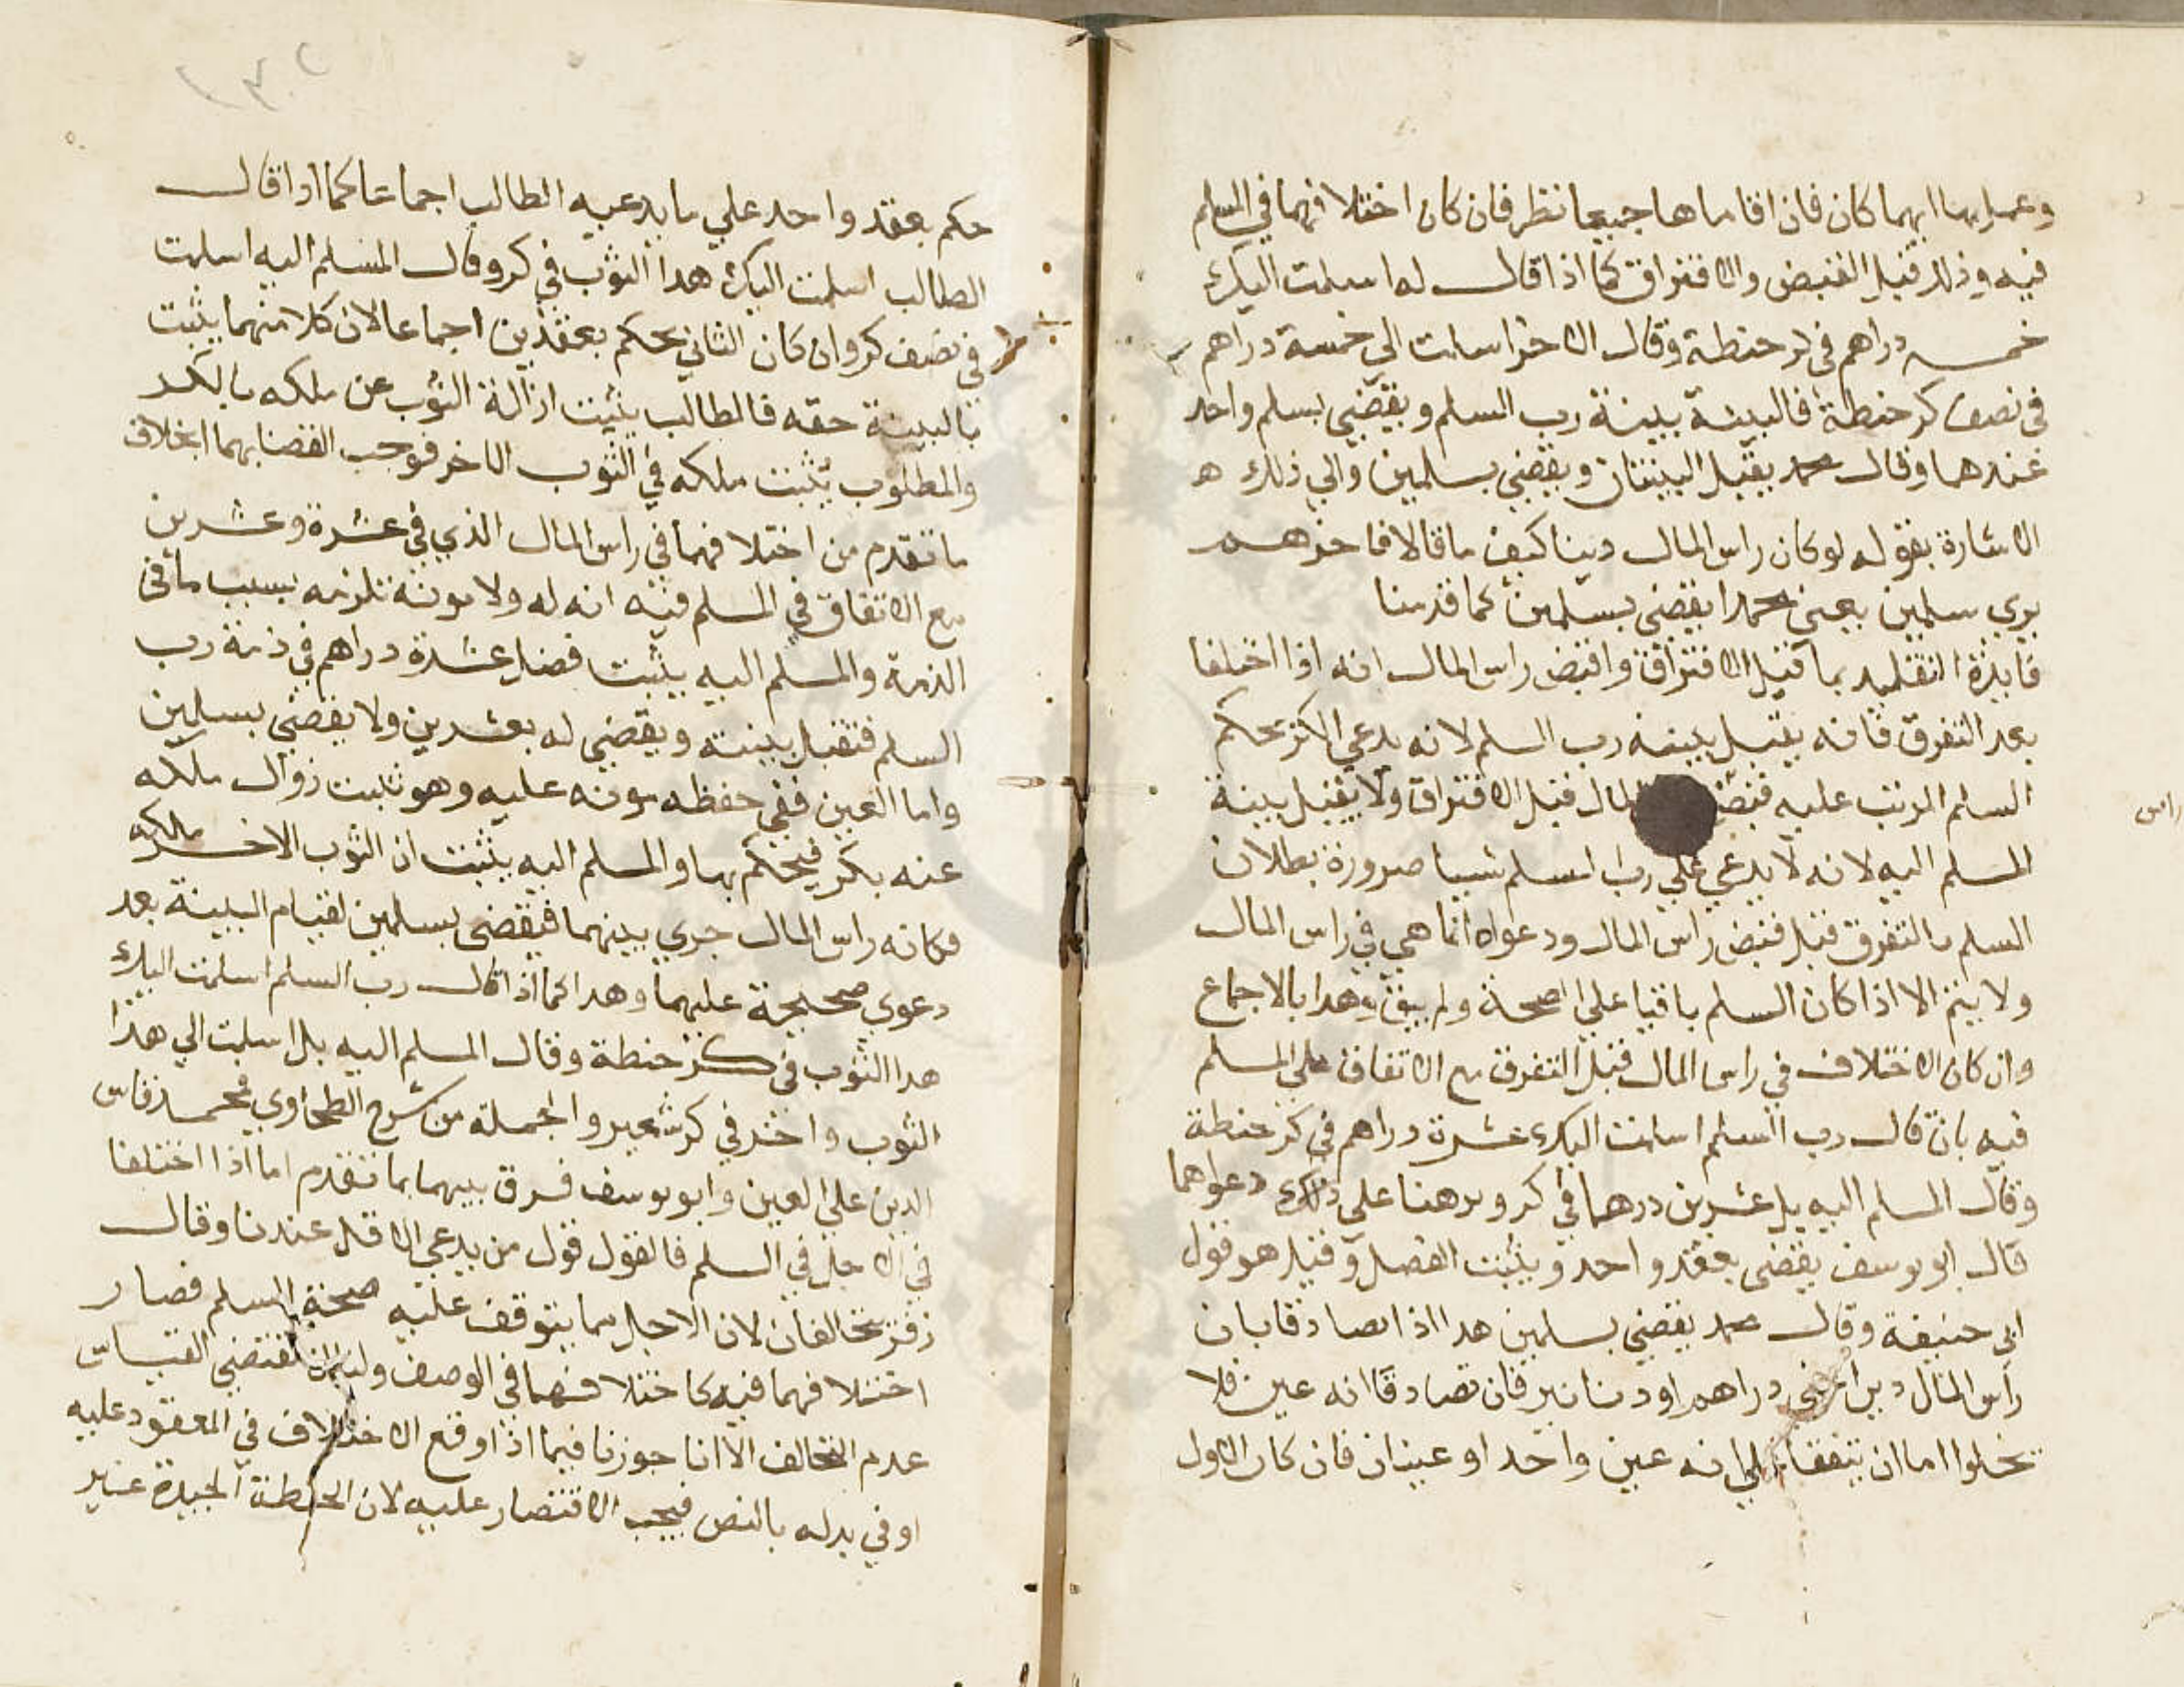 وعمل بها ايهما كان فان اقاماها جميعا نظر فان كان اختلافهما في المسلم
فيه وذلك قبل القبض والافتراق كما اذا قال له اسلمت اليك
خمسه دراهم في كر حنطة وقال الاخر اسلمت الي خمسة دراهم
في نصف كر حنطة فالبينة بينة رب السلم ويقضي بسلم واحد
عندهما وقال محمد يقبل البينتان ويقضي بسلمين والي ذلك ه
الاشارة بقوله لو كان راس المال دينا كيف ما قالا فاخرهم
يري سلمين يعني محمدا يقضي بسلمين كما قدمنا
فايدة التقليد بما قبل الافتراق واقبض راس المال انه اذا اختلفا
بعد التفرق فانه يقبل بينه رب السلم لانه يدعي الاكثر بحكم
السلم المرتب عليه قبض المال قبل الافتراق ولا يقبل بينة
المسلم اليه لانه لا يدعي علي رب السلم شيا ضرورة بطلان
السلم بالتفرق قبل قبض راس المال ودعواه انما هي في راس المال
ولا يتم الا اذا كان السلم باقيا علي الصحة ولم يبق وهدا بالاجماع
وان كان الاختلاف في راس المال قبل التفرق مع الاتفاق علي المسلم
فيه بان قال رب السلم اسلمت اليك عشرة دراهم في كر حنطة
وقال المسلم اليه بل عشرين درهما في كر وبرهنا علي ذلك دعواهما
قال ابو يوسف يقضي بعقد واحد ويثبت الفضل وقيل هو قول
ابي حنيفة وقال محمد يقضي بسلمين هدا اذا تصادقا بان
رأس المال دين اعني دراهم او دنانير فان تصادقا انه عين فلا
يخلوا اما ان يتفقا علي انه عين واحد او عينان فان كان الاول
راس
حكم بعقد واحد علي ما يدعيه الطالب اجماعا كما اذا قال
الطالب اسلمت اليك هدا الثوب في كر وقال المسلم اليه اسلمت
في نصف كر وان كان الثاني يحكم بعقدين اجماعا لان كلا منهما يثبت
بالبينة حقه فالطالب يثبت ازالة الثوب عن ملكه بالكر
والمطلوب يثبت ملكه في الثوب الاخر فوجب القضا بهما بخلاف
ما تقدم من اختلافهما في راس المال الذي في عشرة وعشرين
مع الاتفاق في المسلم فيه انه له ولا مونة تلزمه بسبب ما في
الذمة والمسلم اليه يثبت فضل عشرة دراهم في ذمة رب
السلم فتقبل بينته ويقضي له بعشرين ولا يقضي بسلمين
واما العين ففي حفظه مونه عليه وهو يثبت زوال ملكه
عنه بكر فيحكم بها والمسلم اليه يثبت ان الثوب الاخر ملكه
وكانه راس المال جري بينهما فيقضي بسلمين لقيام البينة بعد
دعوي صحيحة عليهما وهدا كما اذا قال رب السلم اسلمت اليك
هدا الثوب في كر حنطة وقال المسلم اليه بل اسلمت الي هذا
الثوب واخر في كر شعير والجملة من شرح الطحاوي فمحمد قاس
الدين علي العين وابو يوسف فرق بينهما بما تقدم اما اذا اختلفا
في الاجل في السلم فالقول قول من يدعي الاقل عندنا وقال
زفر يتحالفان لان الاجل مما يتوقف عليه صحة السلم فصار
اختلافهما فيه كاختلافهما في الوصف ولنا ان مقتضي القياس
عدم التحالف الا انا جوزنا فيما اذا وقع الاختلاف في المعقود عليه
او في بدله بالنص فيجب الاقتصار عليه لان الحنطة الجيدة غير